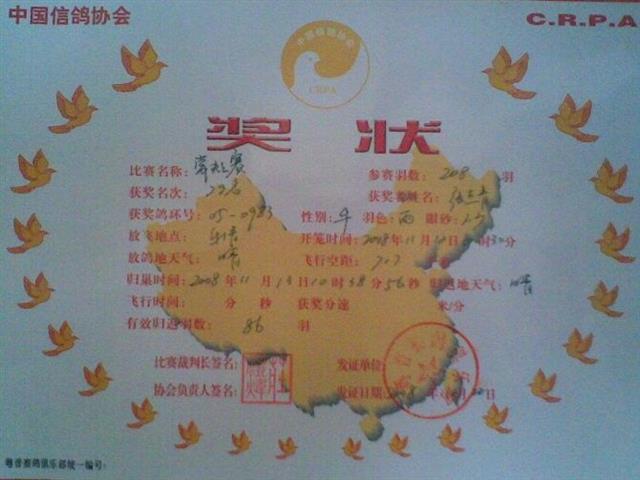 中国信鸽协会
C.R.P.A
中国信鸽协会
CRPA
奖 状
比赛名称: 参赛羽数: 208 羽
获奖名次: 获奖者姓名:
获奖鸽环号: 05-0983 性别: 羽色: 雨 眼砂:
放飞地点: 开笼时间: 2008年11月12日 时30分
放鸽地天气: 晴 飞行空距: 707
归巢时间: 2008年11月13日10时38分56秒 归返地天气: 晴
飞行时间: 分 秒 获奖分速 米/分
有效归返羽数: 86 羽
比赛裁判长签名: 发证单位:
协会负责人签名: 发证日期: 年 月 日